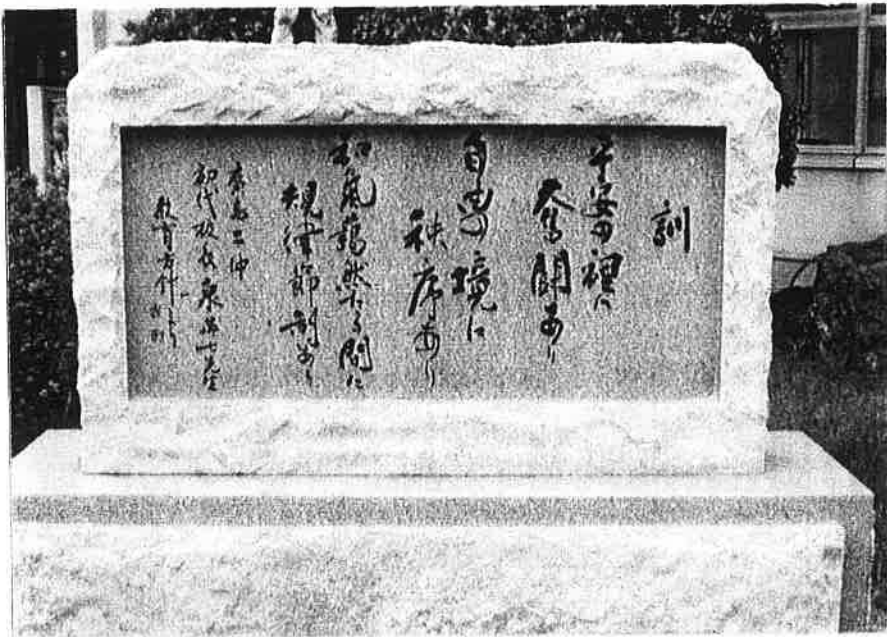 訓
平安の裡に
奮闘あり
自由の境に
秩序あり
和気藹然たる間に
規律節制あり
広島二中
初代校長 先生
教育方針より